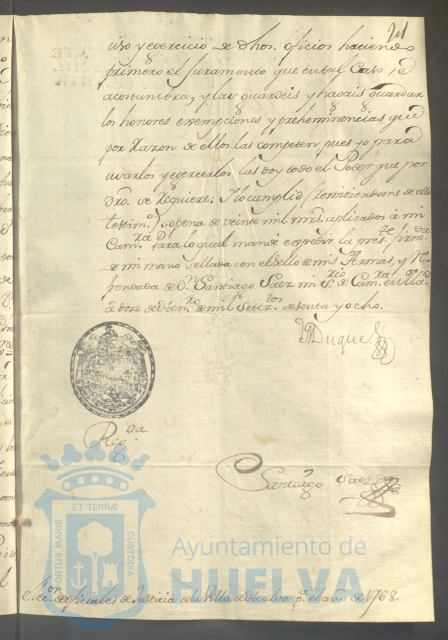 211
uso y egercicio de dhos. oficios haciendo
primero el Juramento que en tal Caso se
acostumbra, y las guardeis y hagais guardar
los honores exempciones y prehemminencias que
por razon de ellos las competen pues yo para
usarlos y egercerlos las doy todo el Poder que por
dro. se requiere: Y lo cumplid (remitiendome de ello
testimo.) sopena de veinte mil mrs. aplicados à mi
Camra. para lo qual mandé expedir la preste. firmda.
de mi mano sellada con el sello de mis Armas, y re-
frendada de Dn. Santiago Saez mi Srio. de Camra. en Madrid
à doze de de mil Setezos. sesenta y ocho.
El Duque
Regda.
Santiago Saez
ET TERRÆ
PORTUS MARIS
CUSTODIA
Ayuntamiento de
HUELVA
Eleccon. de oficiales de Justicia de la Villa de Huelva pa. el año de 1768.